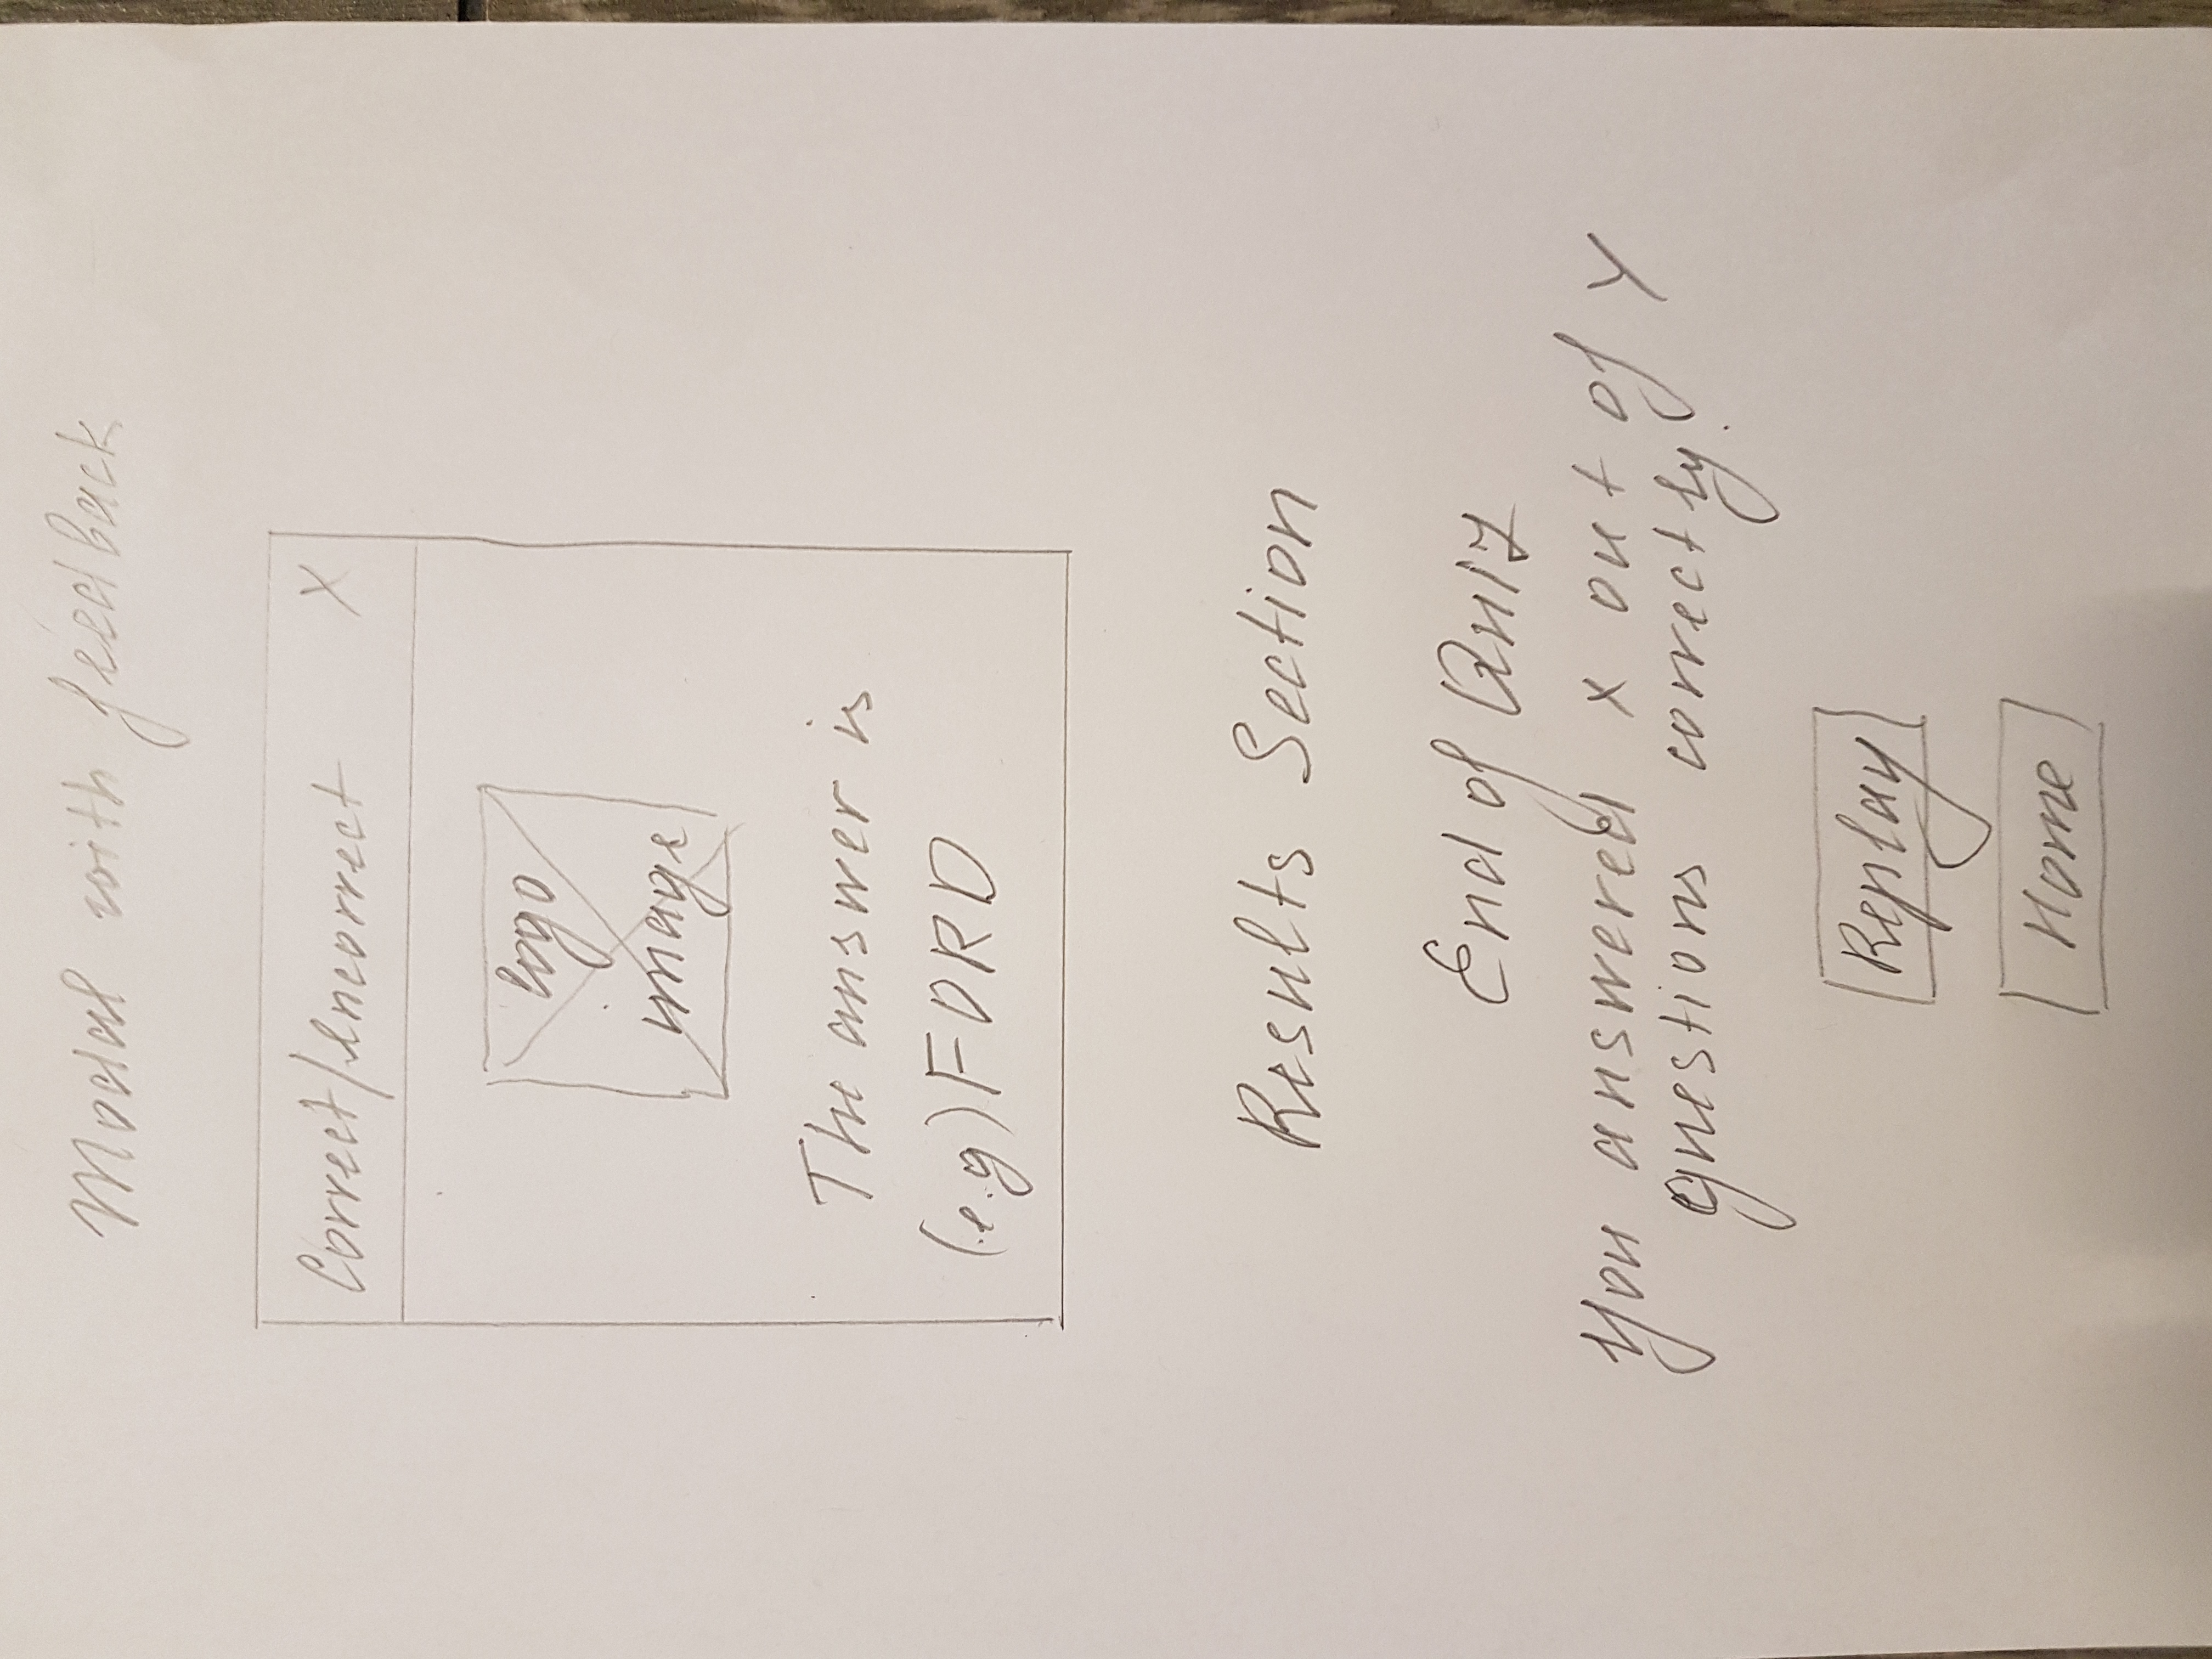 Modal with feedback
Correct/Incorrect X
logo
image
The answer is
(e.g) FORD
Results Section
End of Quiz
You answered x out of y
questions correctly.
Replay
Home